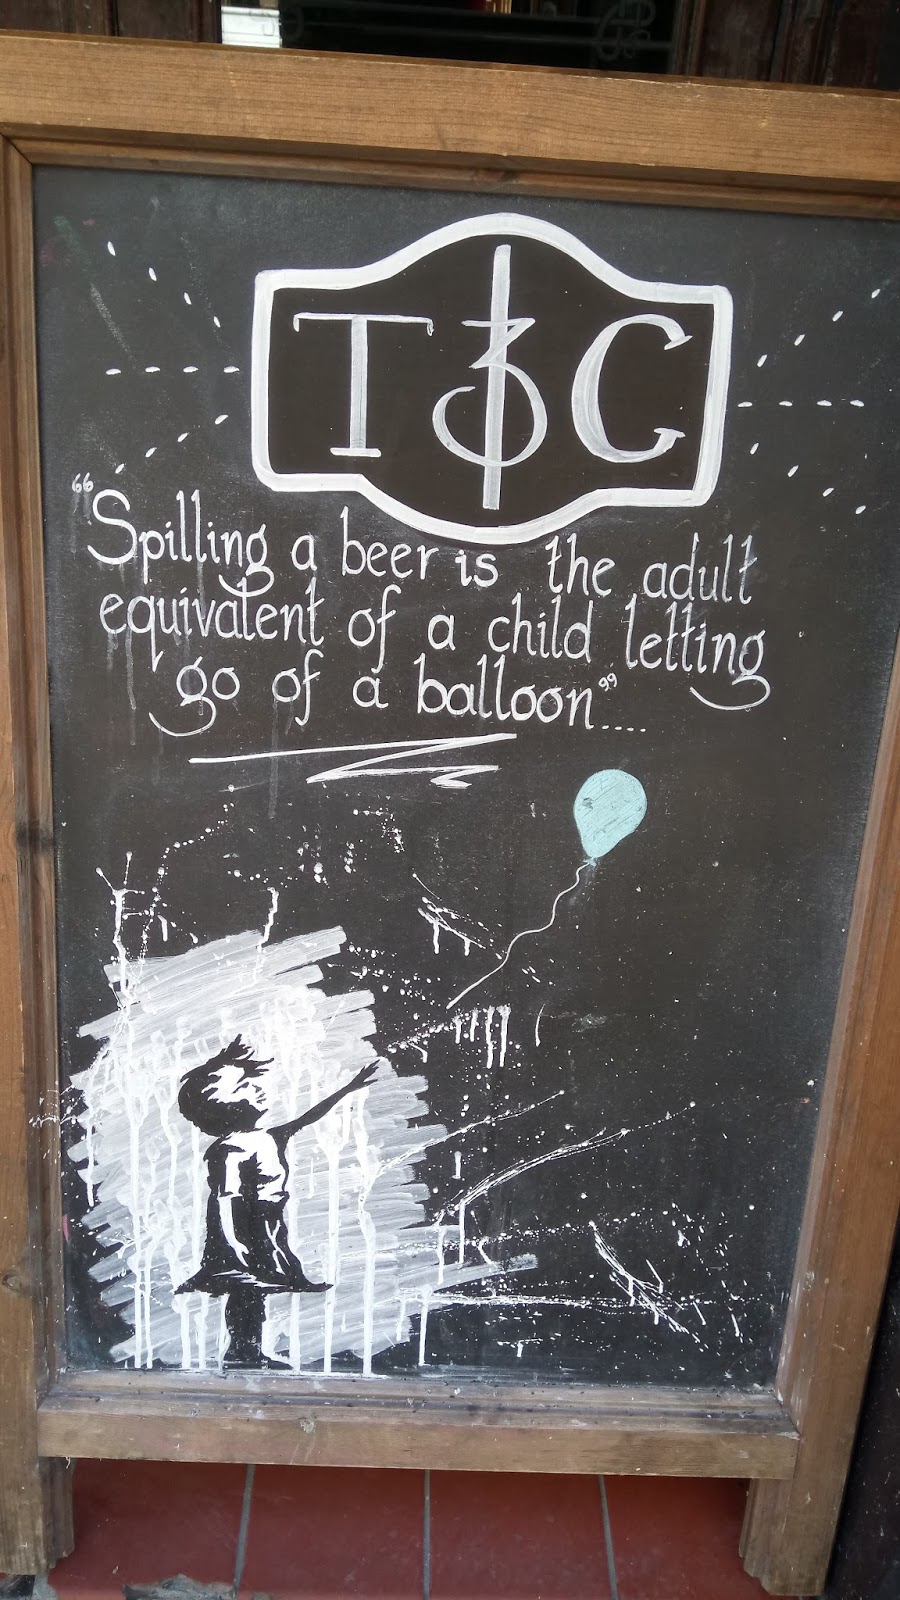 T3C
“Spilling a beer is the adult
equivalent of a child letting
go of a balloon”....